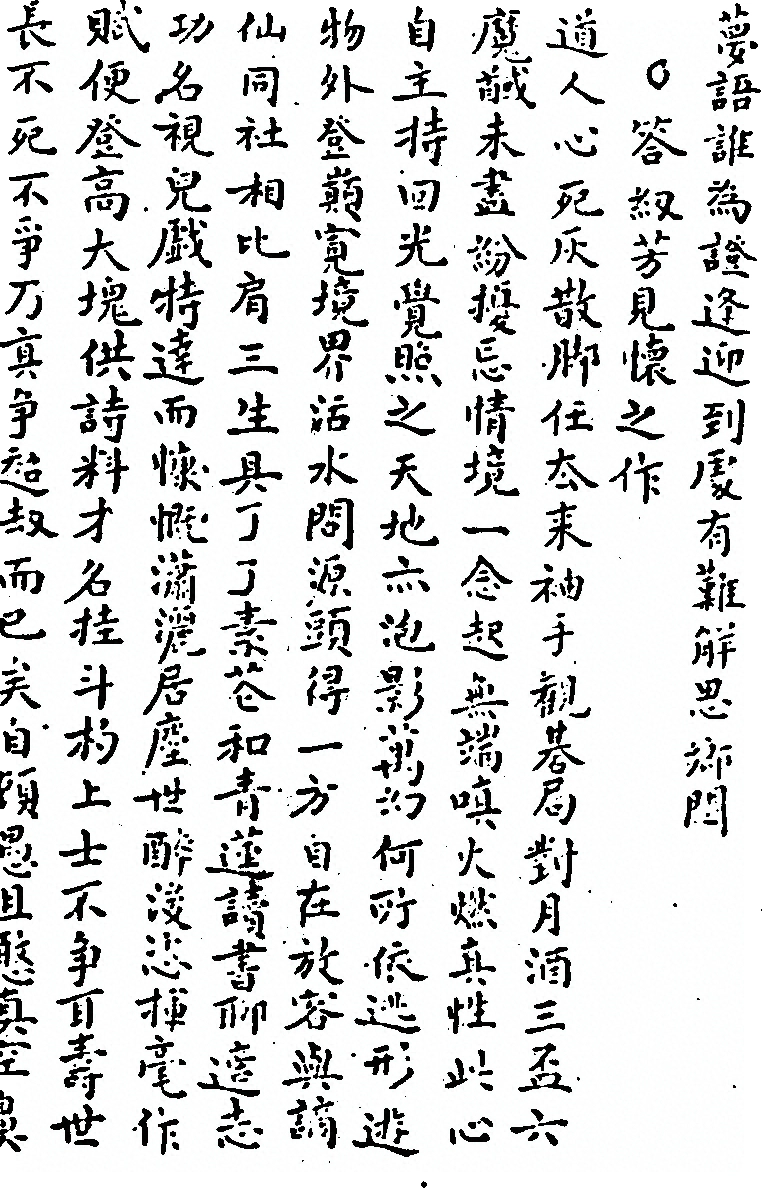 夢語誰為證逢迎到處有難解思鄉関
○答紉芳見懷之作
道人心死灰散腳任厺来袖手觀碁局對月酒三盃六
魔馘未盡紛擾忘情境一念起無端嗔火燃真性此心
自主持回光覺照之天地亦泡影萬幻何所依逃形遊
物外登巔寬境界活水問源頭得一方自在放容與謫
仙同社相比肩三生具了了素荅和青蓮讀書聊適志
功名視兒戲特達而慷慨瀟灑居塵世醉後恣揮毫作
賦便登高大塊供詩料才名挂斗杓上士不争耳壽世
長不死不爭乃真争超劫而已矣自願愚且憨真空